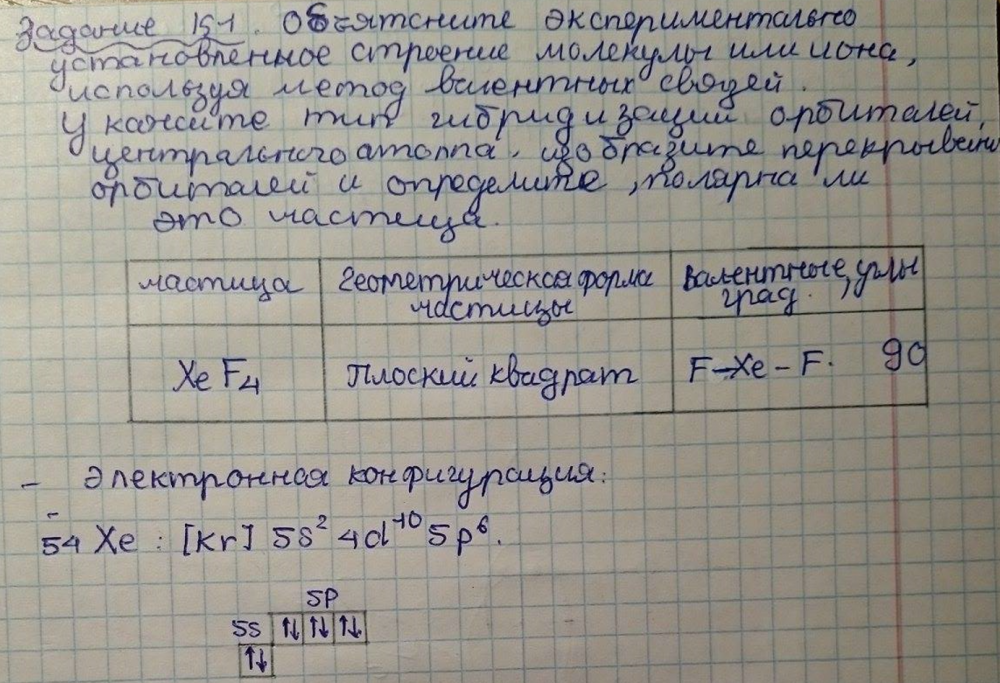 Задание 151. Объятсните экспериментально
установленное строение молекулы или иона,
используя метод валентных связей.
Укажите тип гибридизации орбиталей
центрального атома. изобразите перекрывани
орбиталей и определите, полярна ли
это частица.
частица геометрическая форма частицы Валентные углы, град.
XeF₄ Плоский квадрат F-Xe-F. 90
- Электронная конфигурация:
₅₄Xe : [Kr] 5s² 4d¹⁰ 5p⁶.
5p
5s ↑↓ ↑↓ ↑↓
↑↓